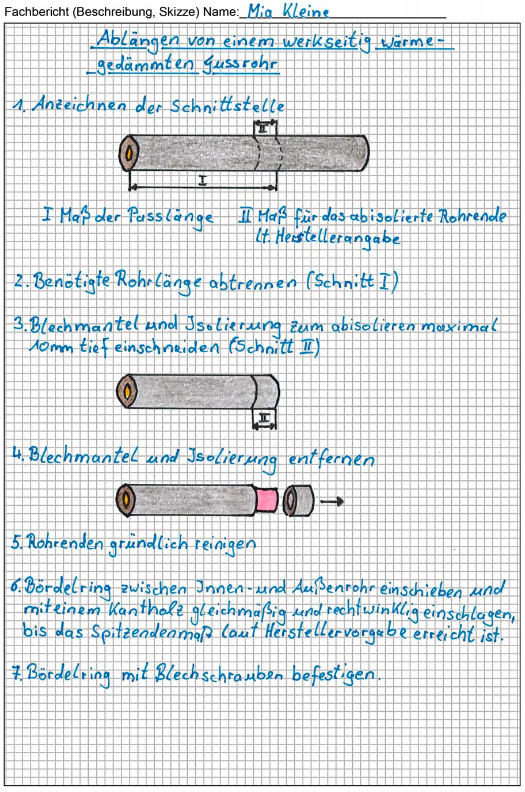 Fachbericht (Beschreibung, Skizze) Name: Mia Kleine
Ablängen von einem werkseitig wärme-
gedämmten Gussrohr
1. Anzeichnen der Schnittstelle
II
I
I Maß der Passlänge II Maß für das abisolierte Rohrende
lt. Herstellerangabe
2. Benötigte Rohrlänge abtrennen (Schnitt I)
3. Blechmantel und Isolierung zum abisolieren maximal
10mm tief einschneiden (Schnitt II)
II
4. Blechmantel und Isolierung entfernen
5. Rohrenden gründlich reinigen
6. Bördelring zwischen Innen- und Außenrohr einschieben und
mit einem Kantholz gleichmäßig und rechtwinklig einschlagen,
bis das Spitzendenmaß laut Herstellervorgabe erreicht ist.
7. Bördelring mit Blechschrauben befestigen.